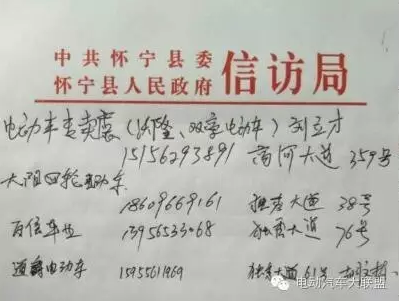 中共怀宁县委
怀宁县人民政府 信访局
电动车专卖店（洪隆、双童电动车）刘立才
15156293891 高河大道359号
大阳四轮电动车
18609669161 独秀大道38号
百信车业 13956533068 独秀大道76号
道爵电动车 15955611969 独秀大道61号
电动汽车大联盟